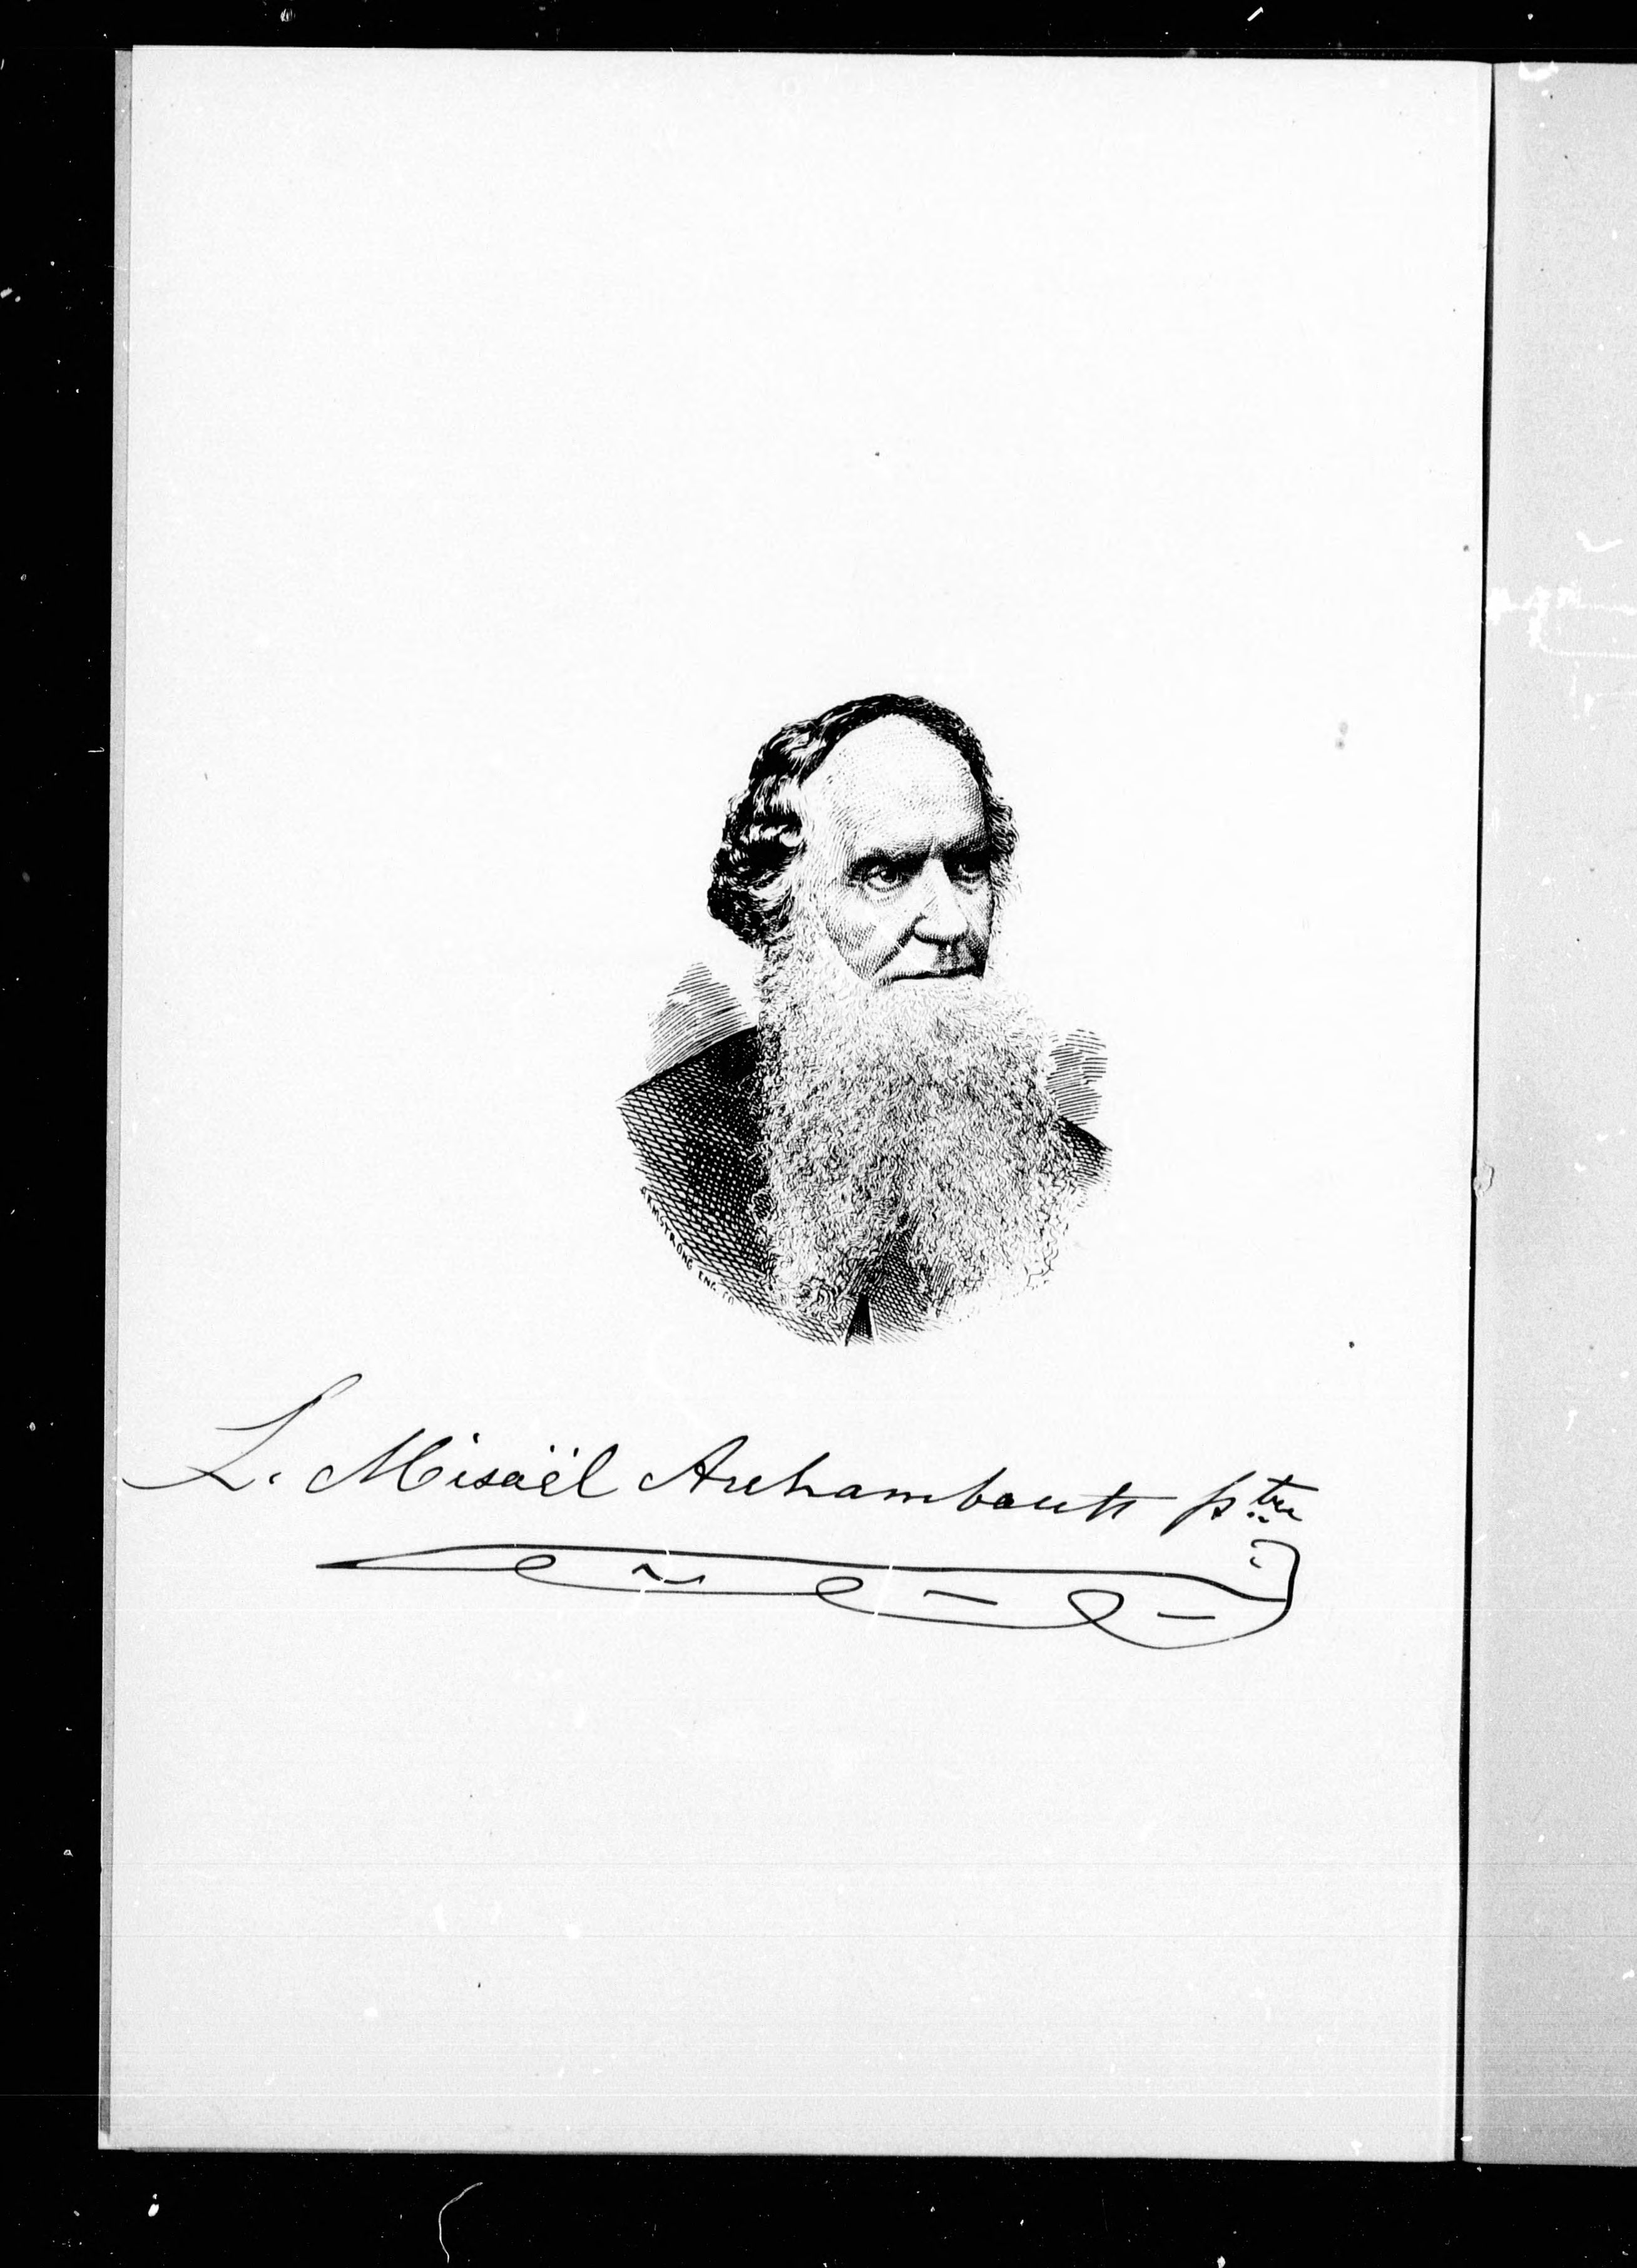 ARMSTRONG ENG. CO
L. Misaël Archambault ptre